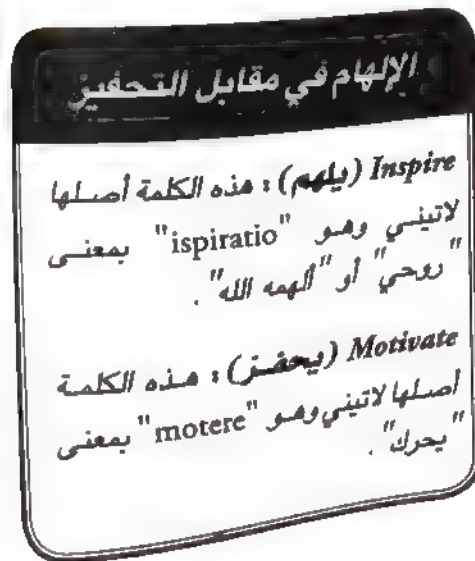 الإلهام في مقابل التحفيز
Inspire (يلهم): هذه الكلمة أصلها
لاتيني وهو "ispiratio" بمعنى
"روحي" أو "ألهمه الله".
Motivate (يحفز): هذه الكلمة
أصلها لاتيني وهو "motere" بمعنى
"يحرك".